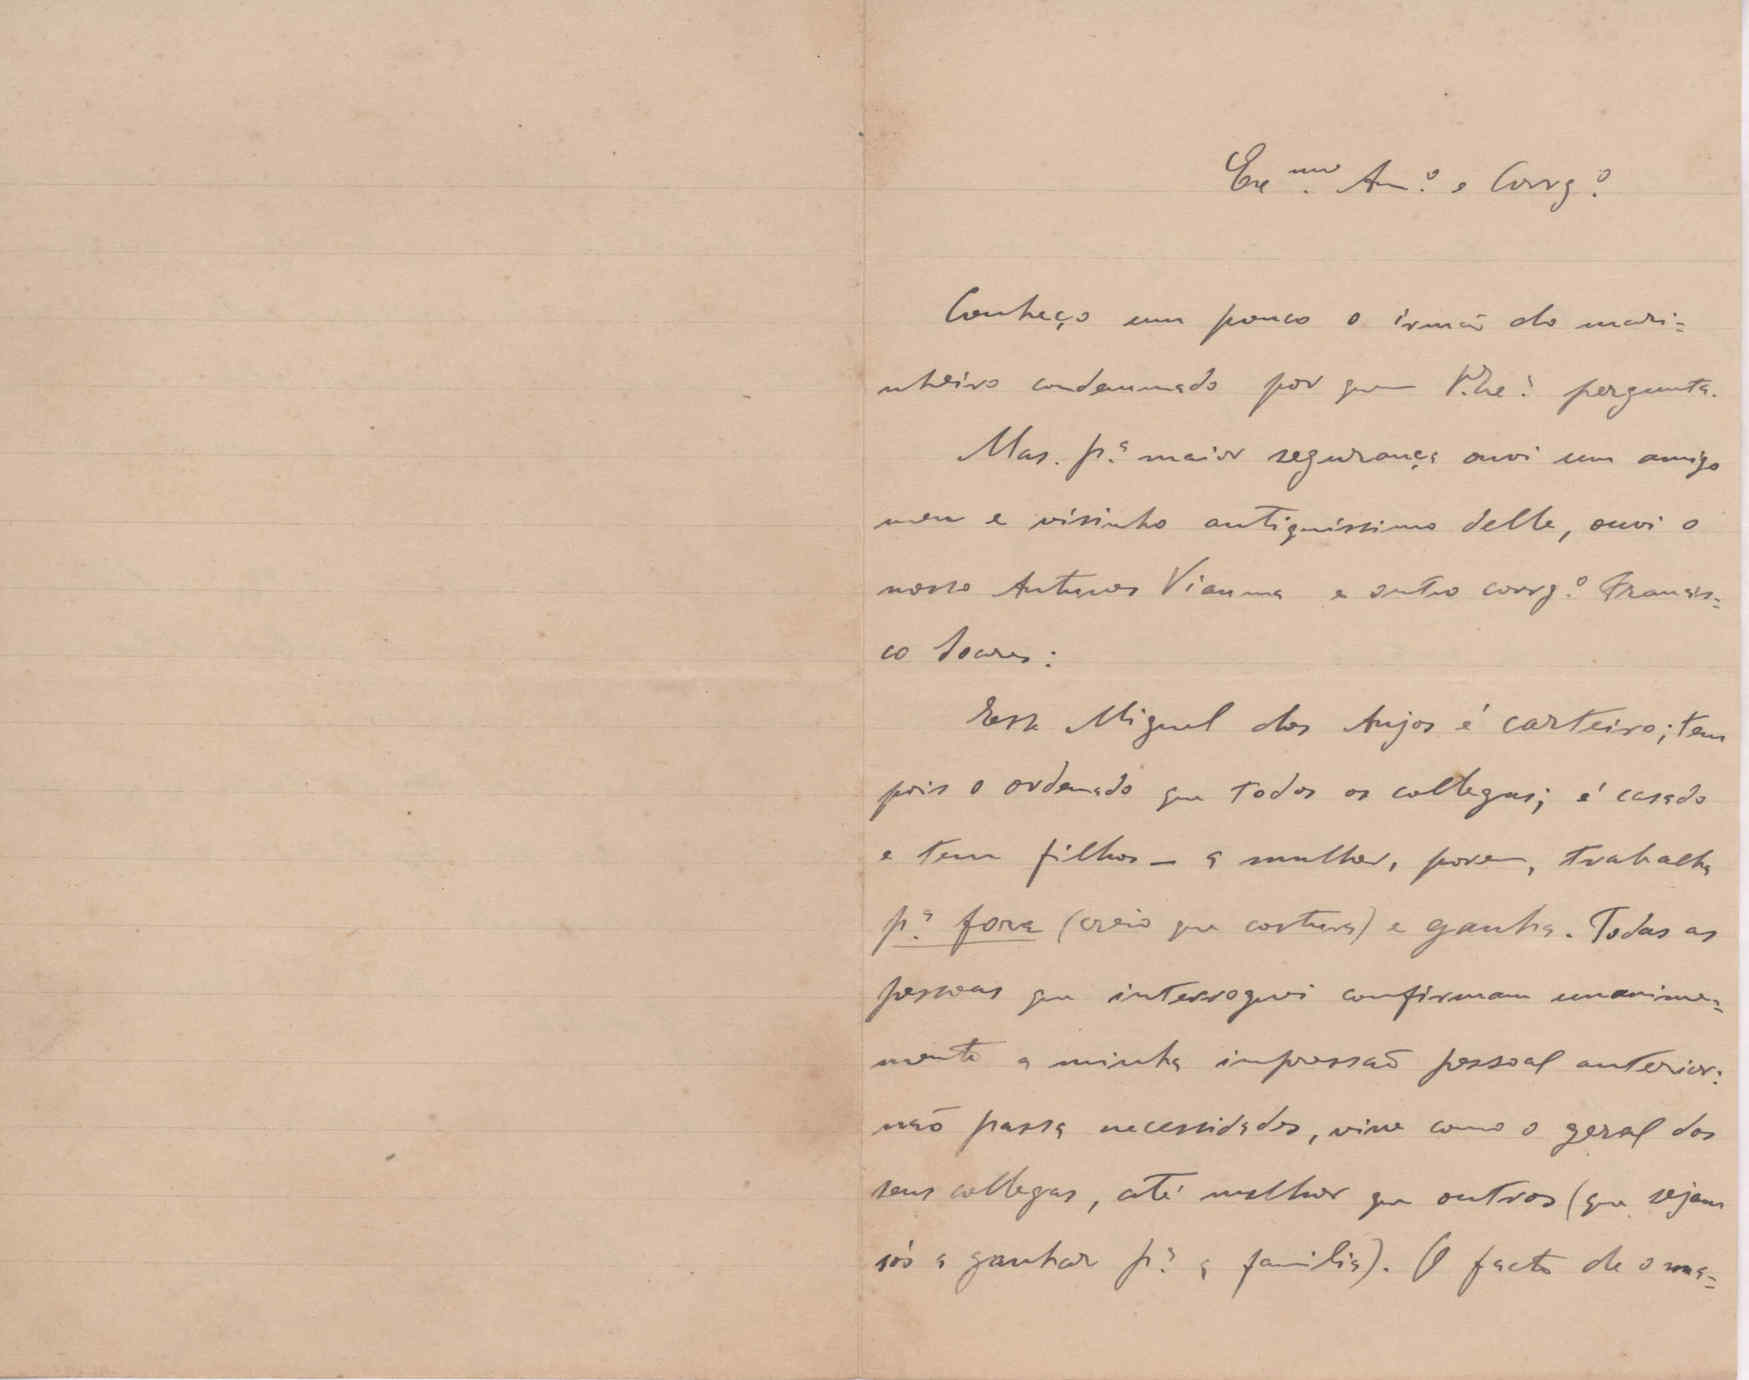 Exmo. Am.º e Corrg.º
Conheço um pouco o irmão do mari=
nheiro condemnado por quem V. Exª. pergunta.
Mas. p.ª maior segurança ouvi um amigo
meu e visinho antiquissimo delle, ouvi o
nosso Antunes Vianna e outro corrg.º Francis=
co Soares:
Esse Miguel dos Anjos é carteiro; tem
pois o ordenado que todos os collegas; é casado
e tem filhos — a mulher, porem, trabalha
p.ª fora (creio que costura) e ganha. Todas as
pessoas que interroguei confirmam unanime=
mente a minha impressão pessoal anterior:
não passa necessidades, vive como o geral dos
seus collegas, até melhor que outros (que sejam
sós a ganhar p.ª a familia). O facto de o ma=